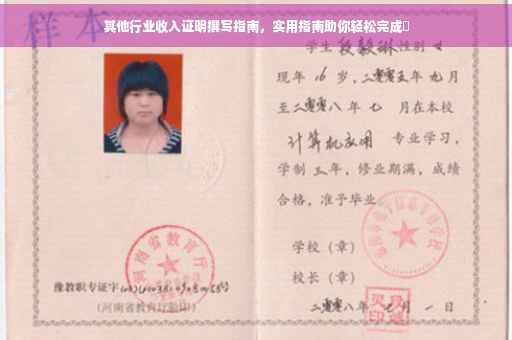 其他行业收入证明撰写指南，实用指南助你轻松完成
样本
学生 段毅琳 性别 女
现年 16 岁，二零零五年 九 月
至二零零八年 七 月在本校
计算机应用 专业学习，
学制 三 年，修业期满，成绩
合格，准予毕业
学校（章）
校长（章）
二零零八年 七 月 一 日
河南省教育厅
豫教职专证字
（河南省教育厅验印）